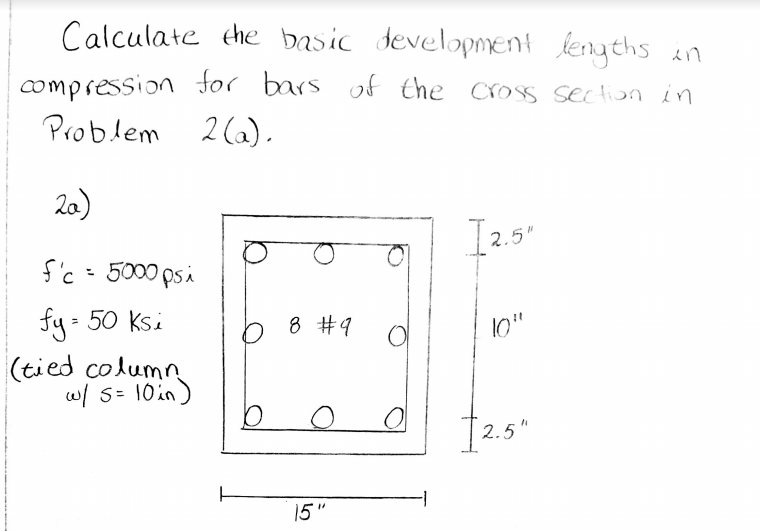 Calculate the basic development lengths in
compression for bars of the cross section in
Problem 2(a).
2a)
f'c = 5000 psi
fy = 50 Ksi
(tied column
w/ s = 10 in)
8 #9
2.5"
10"
2.5"
15"